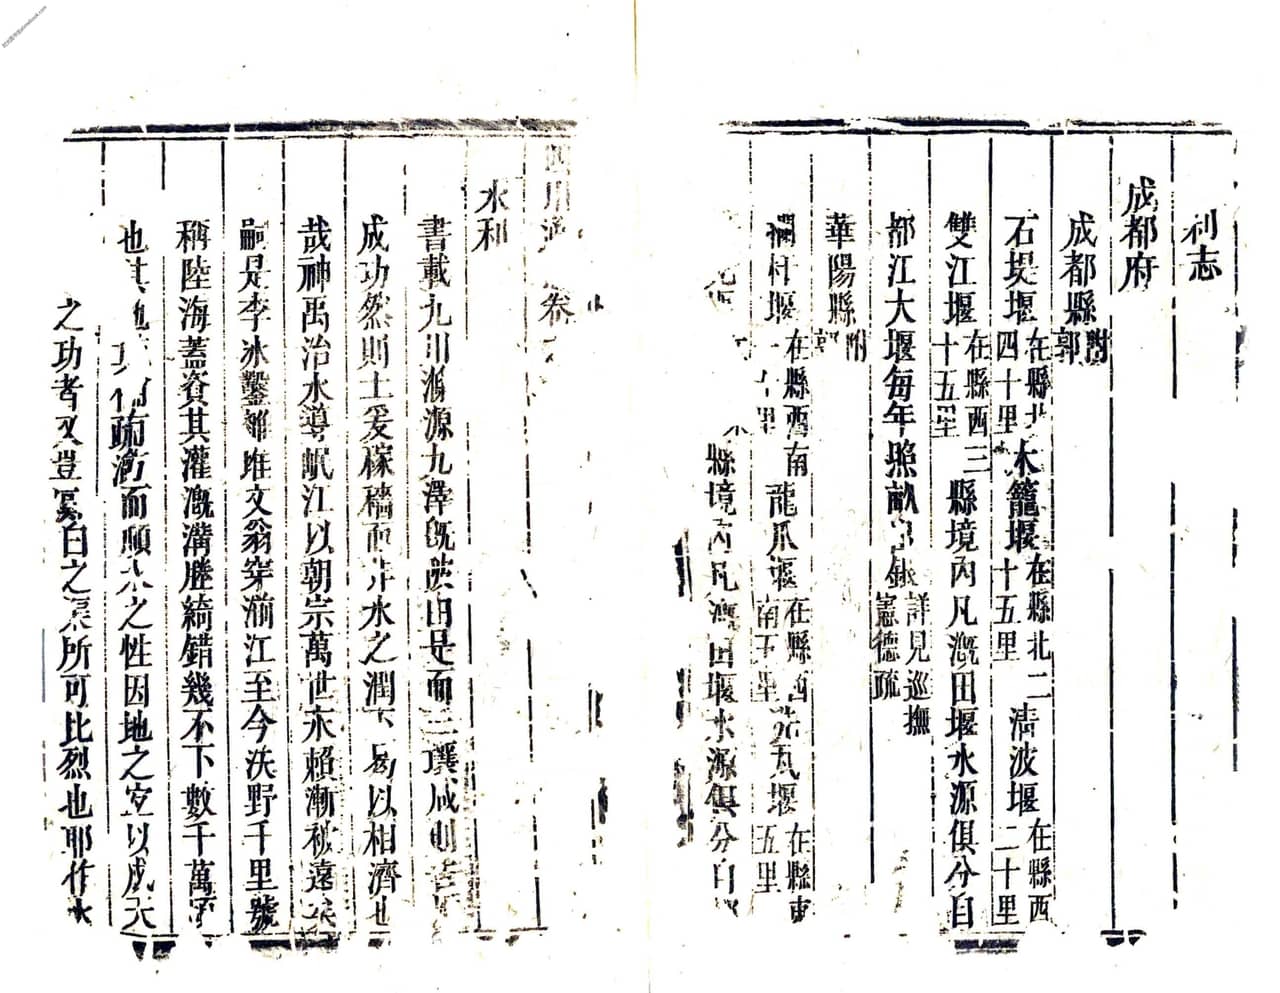 四川通志卷
水利
書載九川滌源九澤既陂由是而三壤咸則
成功然則土爰稼穡而井水之潤下以相濟也
哉神禹治水導岷江以朝宗萬世永賴漸被遠矣
嗣是李冰鑿離堆文翁穿湔江至今沃野千里號
稱陸海蓋資其灌漑溝塍綺錯幾不下數千萬
也其疏瀹而順水之性因地之宜以成天
之功者又豈冀白之渠所可比烈也耶作水
利志
成都府
成都縣附郭
石堤堰在縣北四十里 木籠堰在縣北二十五里 清波堰在縣西二十里
雙江堰在縣西三十五里 縣境內凡漑田堰水源俱分自
都江大堰每年照畝詳見巡撫憲德疏
華陽縣附郭
堰在縣西南十里 龍爪堰在縣西南五里 堰在縣東五里
縣境內凡漑田堰水源俱分自